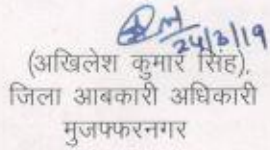 24/3/19
(अखिलेश कुमार सिंह),
जिला आबकारी अधिकारी
मुजफ्फरनगर